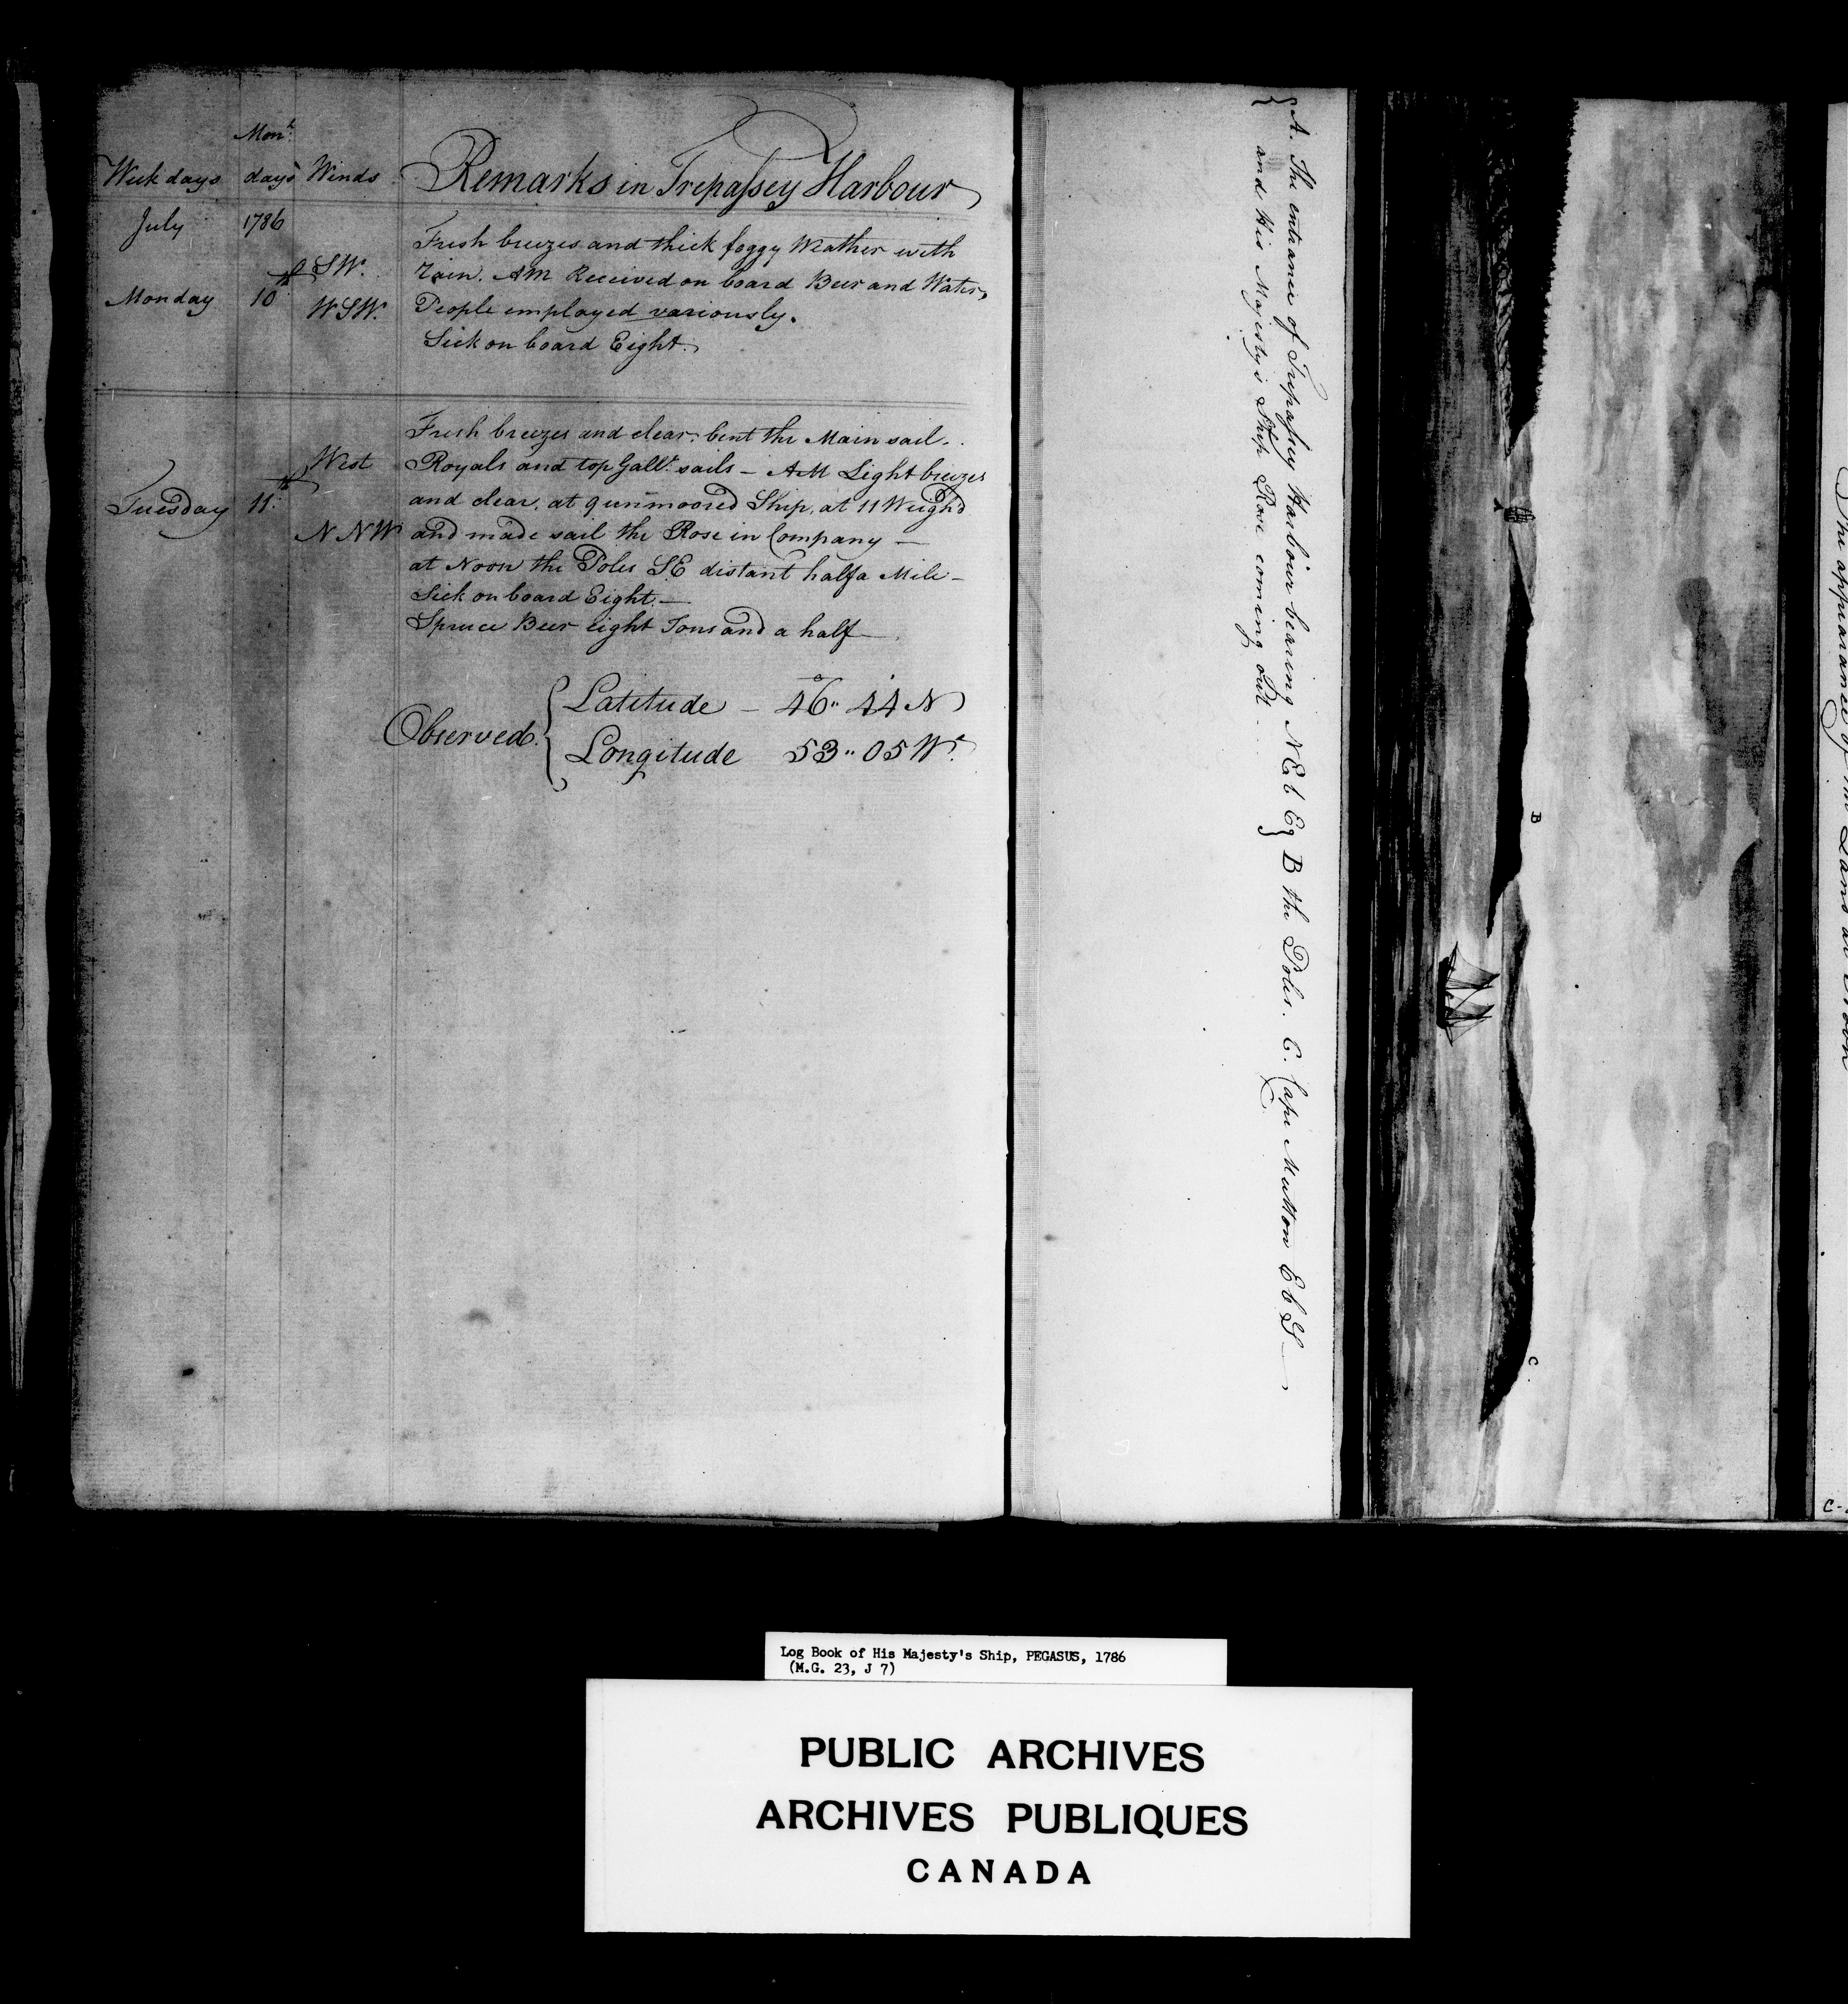 Month
Week days days Winds Remarks in Trepassey Harbour
July 1786
Monday 10th SW. WSW.
Fresh breezes and thick foggy Weather with
rain. AM Received on board Beer and Water,
People employed variously.
Sick on board Eight.
Tuesday 11th West NNW
Fresh breezes and clear, bent the Main sail.
Royals and top Gallt. sails - AM Light breezes
and clear, at 9 unmoored Ship, at 11 Weighd
and made sail the Rose in Company -
at Noon the Poles SE distant half a Mile -
Sick on board Eight. -
Spruce Beer eight Tons and a half -
Observed. { Latitude - 46°.. 44' N
Longitude 53.. 05 Wt.
{ A. The entrance of Trepassey Harbour bearing NEbE } B the Poles. C. Cape Mutton EbS -
and His Majesty's Ship Rose coming out.
B
C.
The appearance of the Land at Noon
C-
Log Book of His Majesty's Ship, PEGASUS, 1786
(M.G. 23, J 7)
PUBLIC ARCHIVES
ARCHIVES PUBLIQUES
CANADA